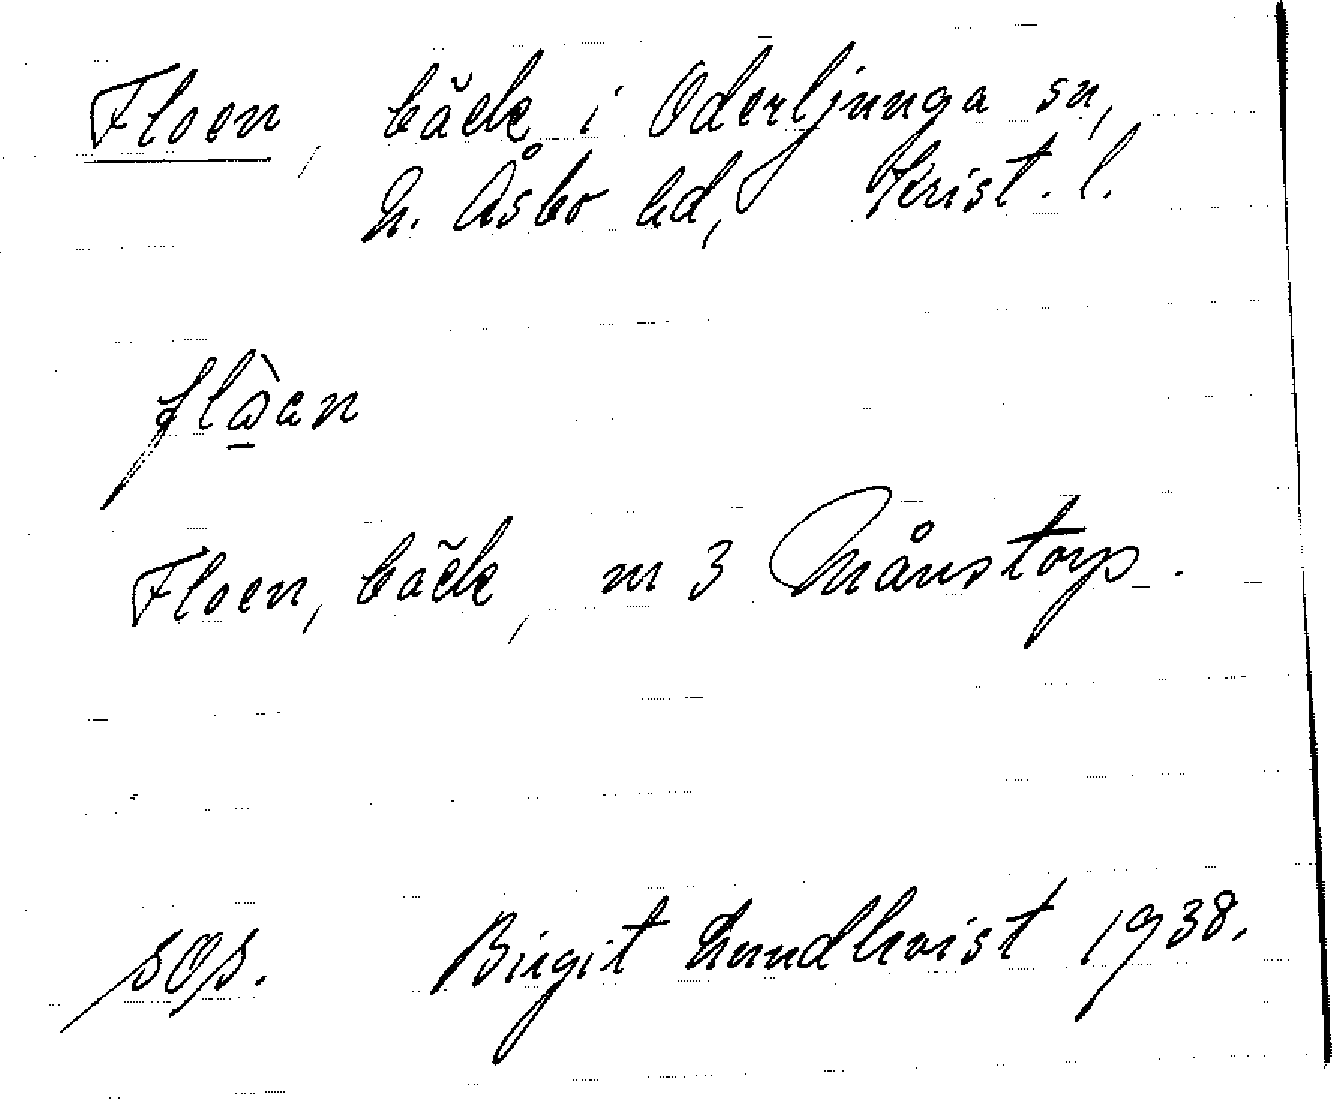 Floen, bäck i Oderljunga sn,
N. Åsbo hd, Krist. l.
Floen, bäck, m 3 Månstorp.
sOs. Birgit Lundkvist 1938.